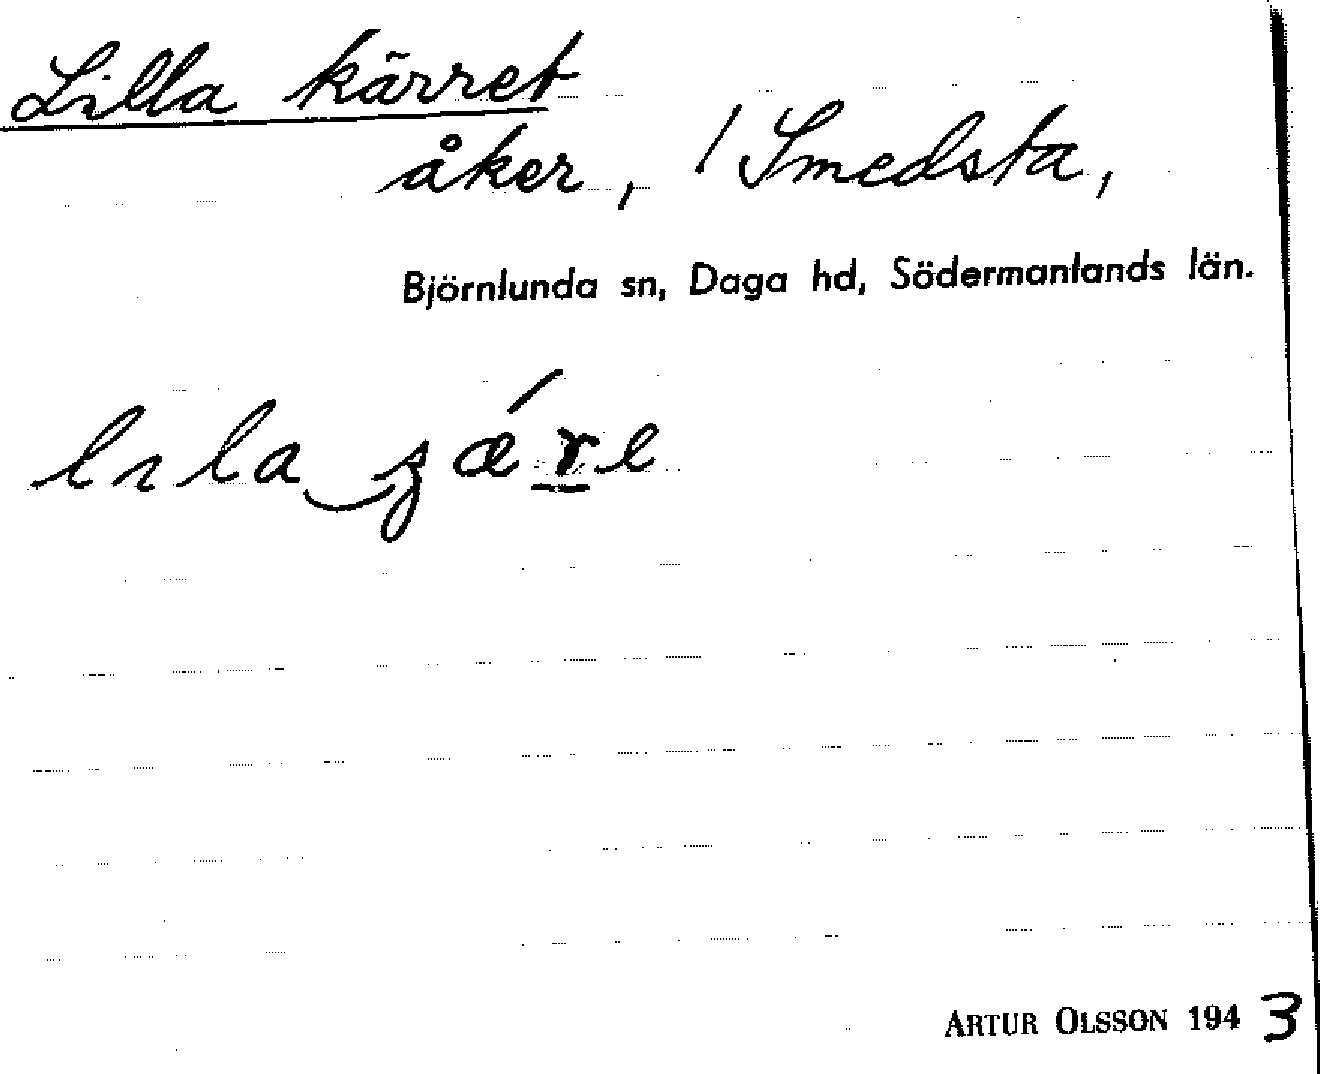 Lilla kärret
åker, / Smedsta,
Björnlunda sn, Daga hd, Södermanlands län.
ARTUR OLSSON 1943